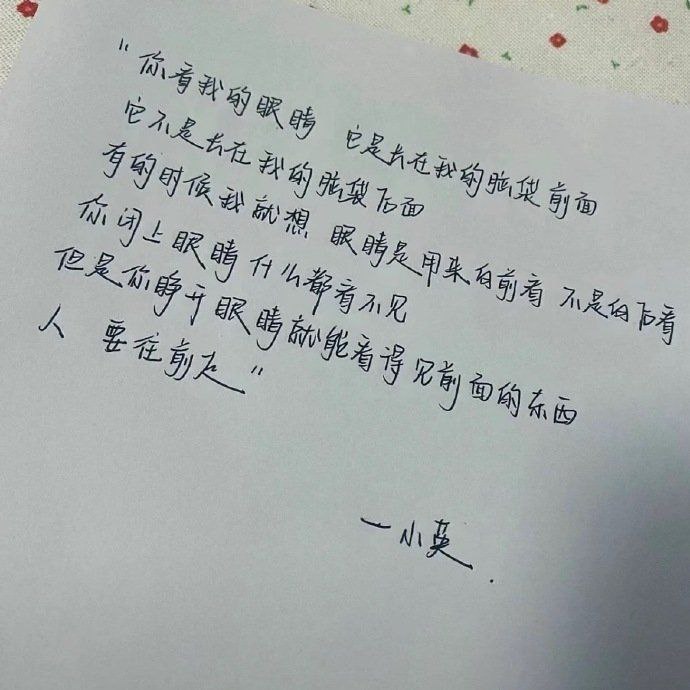 “你看我的眼睛 它是长在我的脑袋前面
它不是长在我的脑袋后面
有的时候我就想 眼睛是用来向前看 不是向后看
你闭上眼睛什么都看不见
但是你睁开眼睛就能看得见前面的东西
人 要往前走”
—小英.